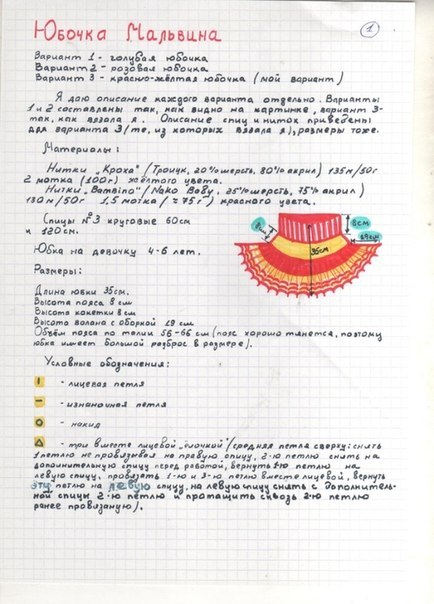 Юбочка Мальвина
1
Вариант 1 - голубая юбочка
Вариант 2 - розовая юбочка
Вариант 3 - красно-жёлтая юбочка (мой вариант)
Я даю описание каждого варианта отдельно. Варианты
1 и 2 составлены так, как видно на картинке, вариант 3-
так, как вязала я. Описание спиц и ниток приведены
для варианта 3 (те, из которых вязала я), размеры тоже.
Материалы:
Нитки "Кроха" (Троицк, 20% шерсть, 80% акрил) 135м/50г
2 мотка (100г) жёлтого цвета.
Нитки "Bambino" (Nako Baby, 25% шерсть, 75% акрил)
130м/50г 1,5 мотка (≈75г) красного цвета.
Спицы №3 круговые 60см
и 120см.
8см
8см
35см
19см
Юбка на девочку 4-6 лет.
Размеры:
Длина юбки 35см.
Высота пояса 8см
Высота кокетки 8см
Высота волана с оборкой 19см
Объём пояса по талии 56-66см (пояс хорошо тянется, поэтому
юбка имеет большой разброс в размере).
Условные обозначения:
I - лицевая петля
- - изнаночная петля
O - накид
Δ - три вместе лицевой "ёлочкой" (средняя петля сверху: снять
1 петлю не провязывая на правую спицу, 2-ю петлю снять на
дополнительную спицу перед работой, вернуть 1-ю петлю на
левую спицу, провязать 1-ю и 3-ю петлю вместе лицевой, вернуть
эту петлю на левую спицу, на левую спицу снять с дополнитель-
ной спицы 2-ю петлю и протащить сквозь 2-ю петлю
ранее провязаную).